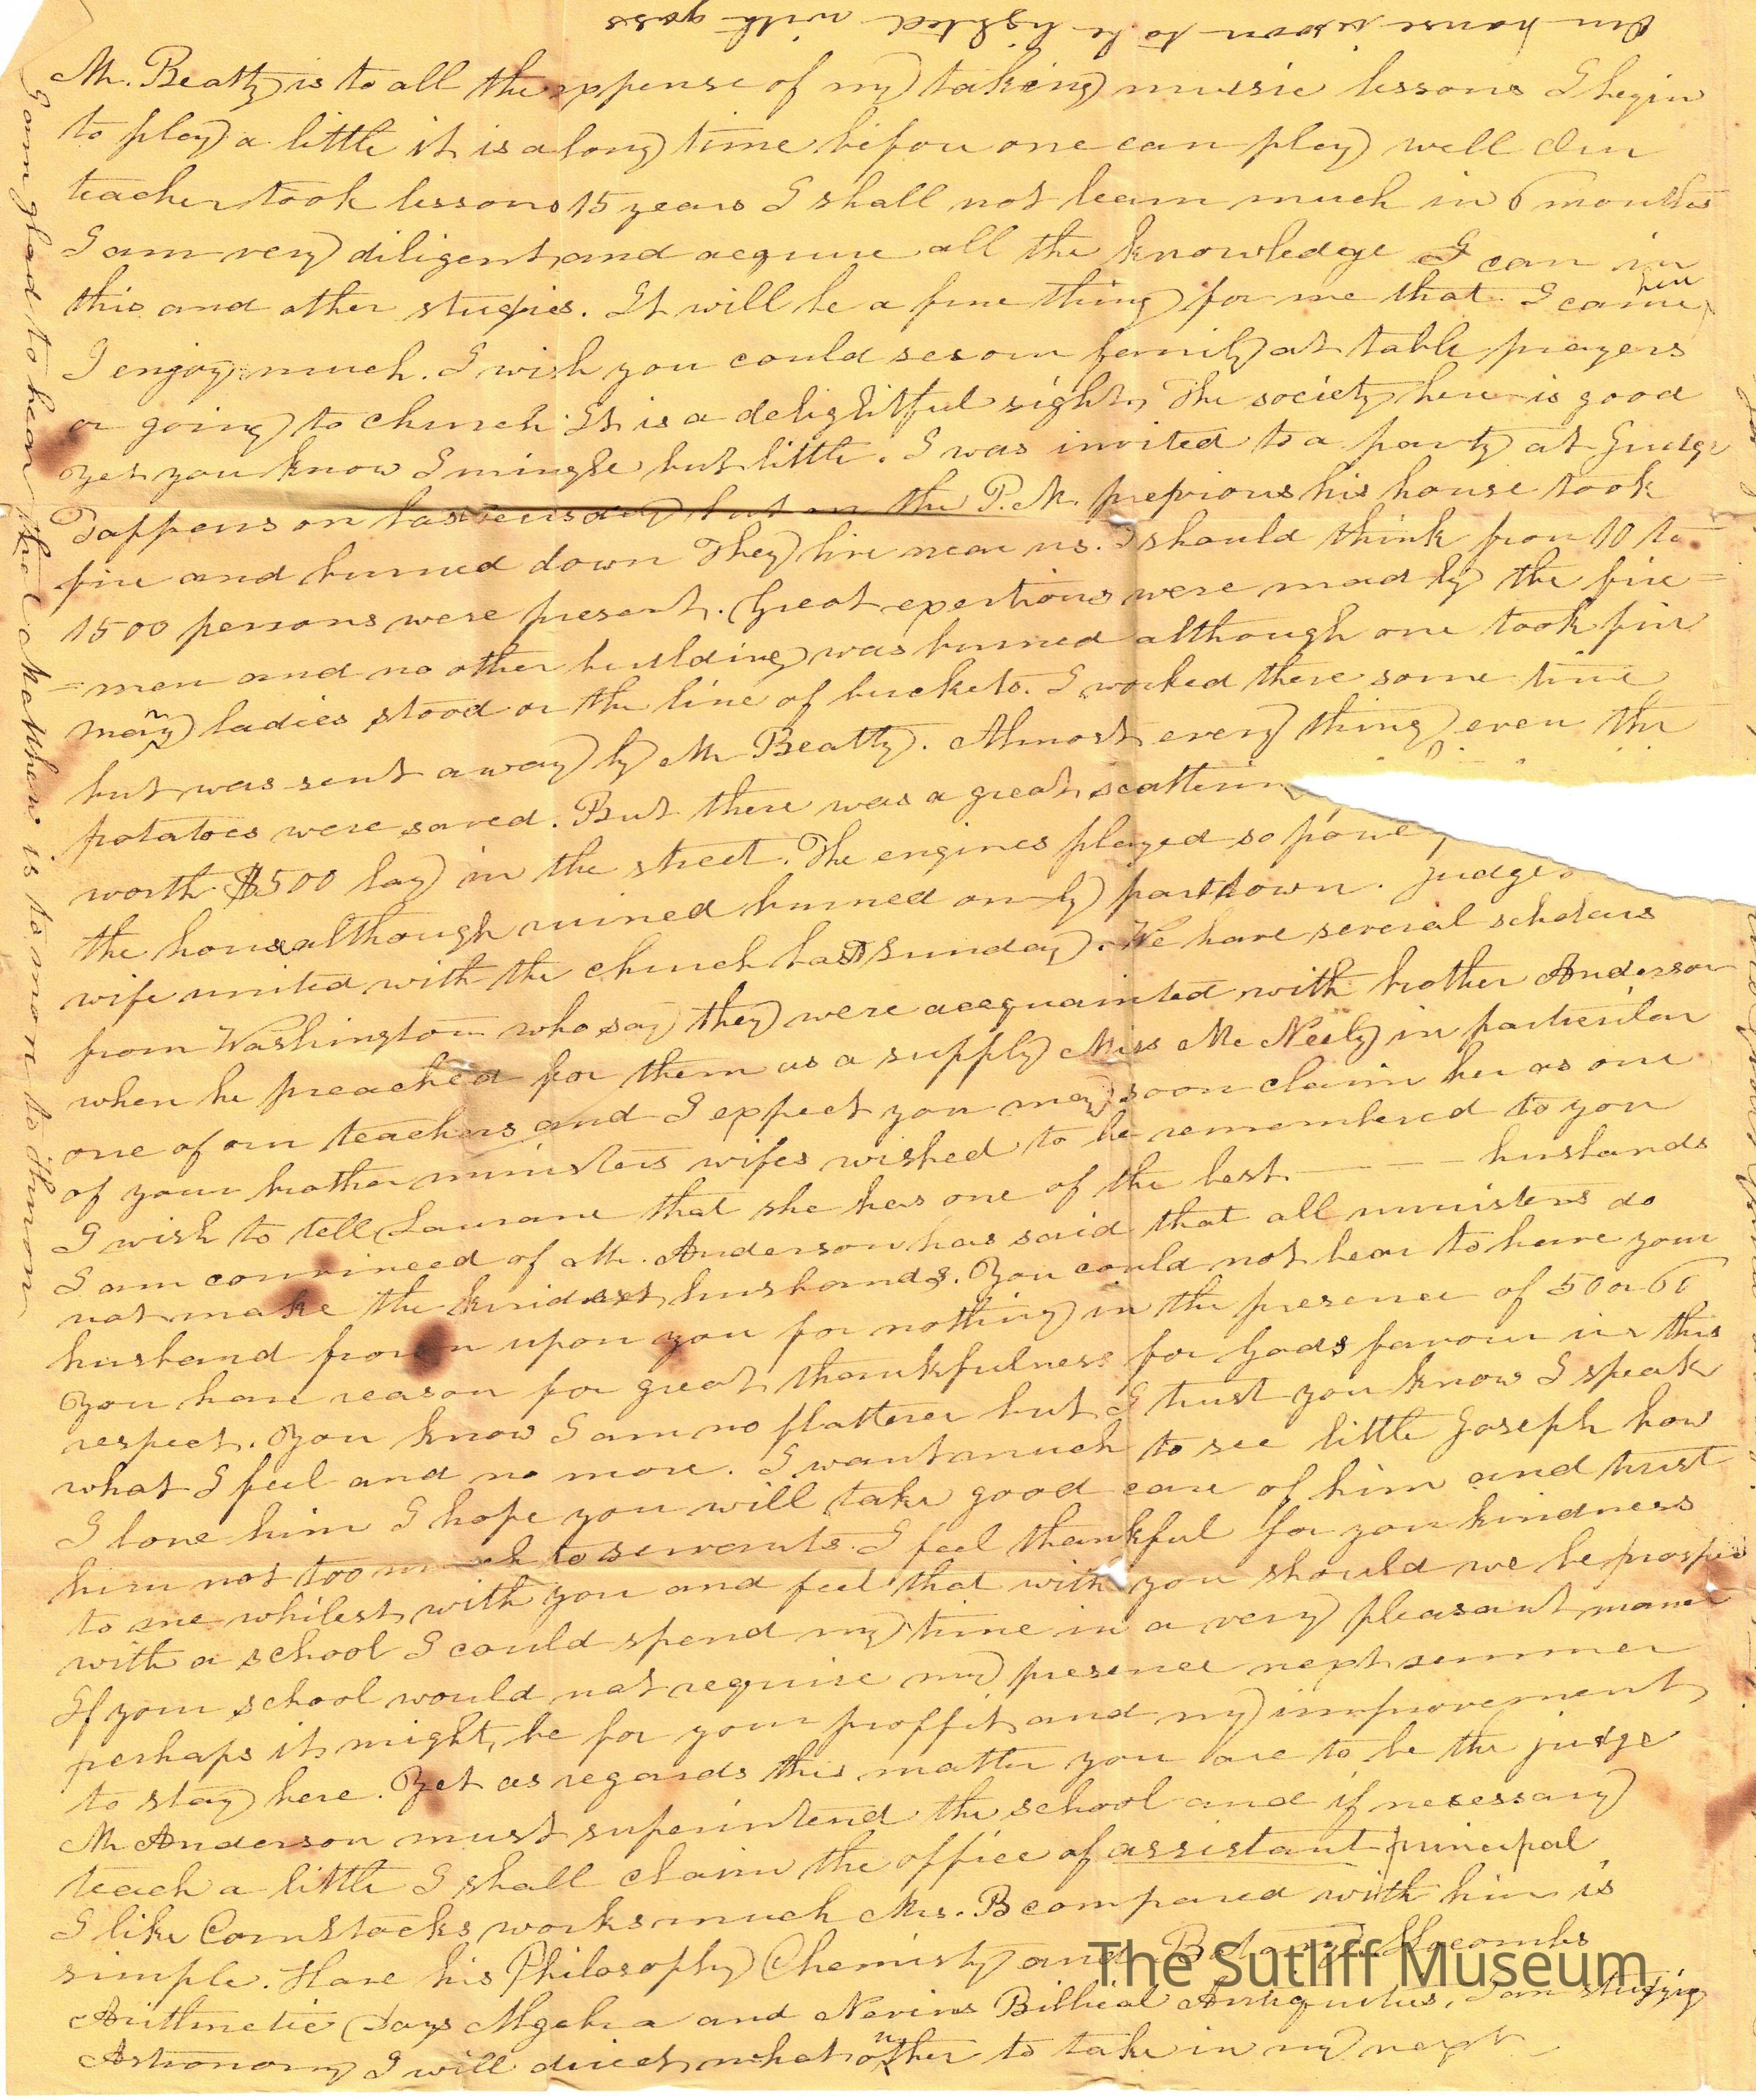 Our house is soon to be lighted with gass
Mr. Beatty is to all the expense of my taking mussic lessons I begin
to play a little it is a long time before one can play well Our
teacher took lessons 15 years I shall not learn much in 6 months
I am very diligent and acquire all the knowledge I can in
this and other studies. It will be a fine thing for me that I came here
I enjoy much. I wish you could see our family at table prayers
or going to church It is a delightful sight. The society here is good
yet you know I mingle but little. I was invited to a party at Judge
Tappens on last but on the P.M. previous his house took
fire and burned down They live near us. I should think from 10 to
1500 persons were present. Great exertions were mad by the fire=
=men and no other building was burned although one took fire
many ladies stood on the line of buckets. I worked there some time
but was sent away by Mr Beatty. Almost every thing even the
potatoes were saved. But there was a great scatterin
worth $500 lay in the street. The engines played so
the house although ruined burned only part down. Judge
wife united with the church last sunday. We have several scholars
from Washington who say they were acequainted with brother Anderson
when he preached for them as a supply Miss Mc Neely in particular
one of our teachers and I expect you may soon claim her as one
of your brother ministers wifes wished to be remembered to you
I wish to tell Laurane that she has one of the best — — — husbands
I am convinced of Mr. Anderson has said that all ministers do
not make the kindest husbands. You could not bear to have your
husband frown upon you for nothing in the presence of 50 or 60
You have reason for great thankfulness for Gods favour in this
respect. You know I am no flatterer but I trust you know I speak
what I feel and no more. I want much to see little Joseph how
I love him I hope you will take good care of him and trust
him not too much to servants. I feel thankful for you kindness
to me whilest with you and feel that with you should we be
with a school I could spend my time in a very pleasant maner
If your school would not require my presence next summer
perhaps it might be for your proffit and my improvement
to stay here. Yet as regards this matter you are to be the judge
Mr Anderson must superintend the school and if nesessary
teach a little I shall claim the office of assistant principal
I like Comstocks works much Mrs. B compared with him is
simple. Have his Philosophy Chemisty and
Arithmetic Days Algebra and Nevins Biblical Antiquities, I am studying
Astronomy I will direct what other to take in my next
I am glad to hear that Matthew is to mon to Huron
The Sutliff Museum